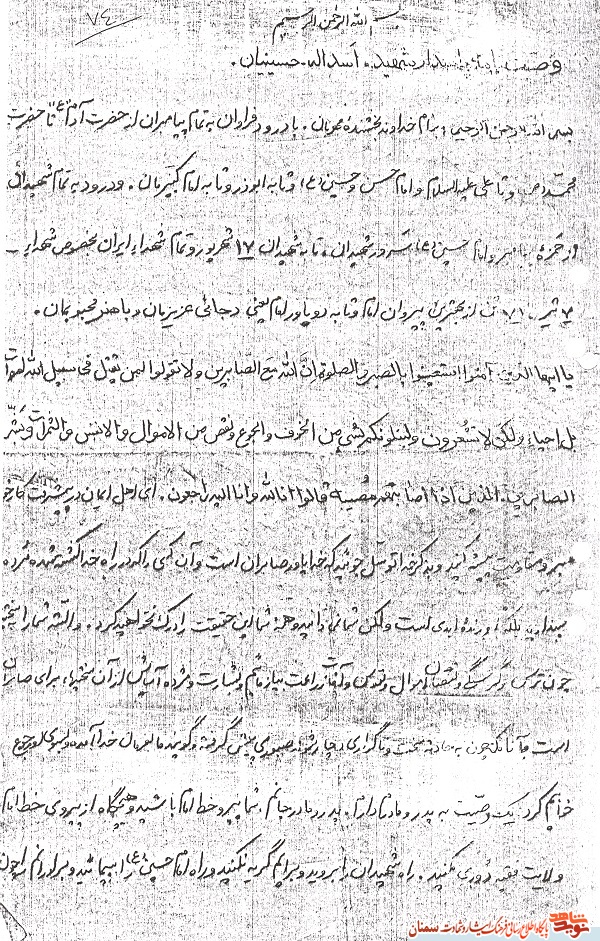 ۷۴
بسم الله الرحمن الرحیم
وصیت نامه پاسدار شهید . اسداله حسینیان .
بسم الله الرحمن الرحیم ، بنام خداوند بخشنده مهربان . با درود فراوان به تمام پیامبران از حضرت آدم (ع) تا حضرت
محمد (ص) و تا علی علیه السلام و امام حسن و حسین (ع) و تا به ابوذر و تا به امام کبیرمان . و درود به تمام شهیدان
از حمزه و امام حسین (ع) سرور شهیدان ، تا به شهیدان ۱۷ شهریور و تمام شهداء ایران بخصوص شهداء
۷ تیر تن از بهترین پیروان امام و تا به دو یاور امام یعنی رجائی عزیزمان و باهنر محبوبمان .
یا ایها الذین آمنوا استعینوا بالصبر و الصلوة ان الله مع الصابرین و لا تقولوا لمن یقتل فی سبیل الله اموات
بل احیاء ولکن لا تشعرون و لنبلونکم بشیء من الخوف و الجوع و نقص من الاموال و الانفس و الثمرات و بشر
الصابرین الذین اذا اصابتهم مصیبة قالوا انا لله و انا الیه راجعون . ای اهل ایمان در پیشرفت کار خو
صبر و مقاومت پیشه کنید و بذکر خدا توسل جوئید که خدا یاور صابران است و آن کسی را که در راه خدا کشته شده مرده
نپندارید بلکه او زنده ابدی است ولکن شما نمی‌دانید و همه شما این حقیقت را درک نخواهید کرد . و البته شما را بسختی
چون ترس و گرسنگی و نقصان اموال و نفوس و آفات زراعت بیازمائیم و بشارت و مژده آسایش از آن سختیها ، برای صابران
است آنانکه چون به حادثه سخت و ناگواری دچار شوند صبوری پیش گرفته و گویند ما بفرمان خدا آمده و بسوی او رجوع
خواهیم کرد یک وصیت به پدر و مادرم دارم . پدر و مادر جانم . شما پیرو خط امام باشید و هیچگاه از پیروی خط امام
ولایت فقیه دوری نکنید . راه شهیدان را بروید و برایم گریه نکنید و راه امام حسین (ع) را بپیمائید و برادرانم را چون
نوید شاهد
پایگاه اطلاع رسانی فرهنگ ایثار و شهادت سمنان